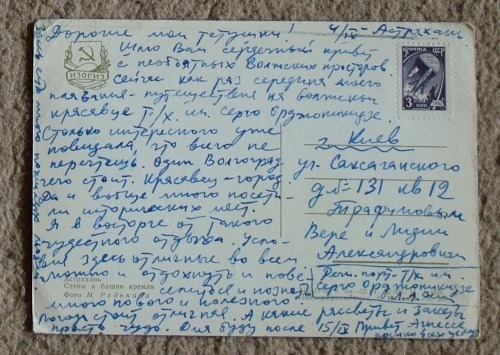 Дорогие мои тетушки! 4/IX- Астрахань
Шлю Вам сердечный привет
с необъятных Волжских просторов.
Сейчас как раз середина моего
плавания - путешествия на волжском
красавце т/х. им. Серго Орджоникидзе.
Столько интересного уже
повидала, что всего не
перечтешь. Один Волгоград
чего стоит. Красавец-город.
Да и вообще много посети-
ли исторических мест.
Я в восторге от такого
чудестного отдыха. Усло-
вия здесь отличные во всем
можно и отдохнуть и пове-
селиться и познать
много нового и полезного.
Погода стоит отличная. А какие рассветы и закаты
просто чудо. Дня буду после 15/IX Привет Агнессе
ПОЧТА СССР
3 коп
г. Киев
ул. Саксаганского
д. № 131 кв 12
Трафумовым
Вере и Лидии
Александрович
Реч. порт. т/х им
Серго Орджоникидзе
Астрахань
Стены и башни кремля
Фото М. Редькина